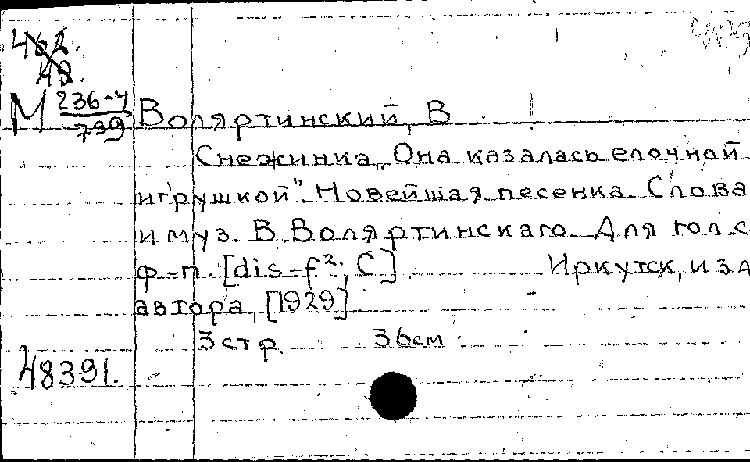 482.
48.
М 236-4
739
Воляртинский, В
Снежинка „Она казалась елочной
игрушкой". Новейшая песенка. Слова
и муз. В. Воляртинскаго. Для гол. с
ф-п. [dis-f²; C] Иркутск, изд
автора, [1929]
3 стр. 36 см
48391.